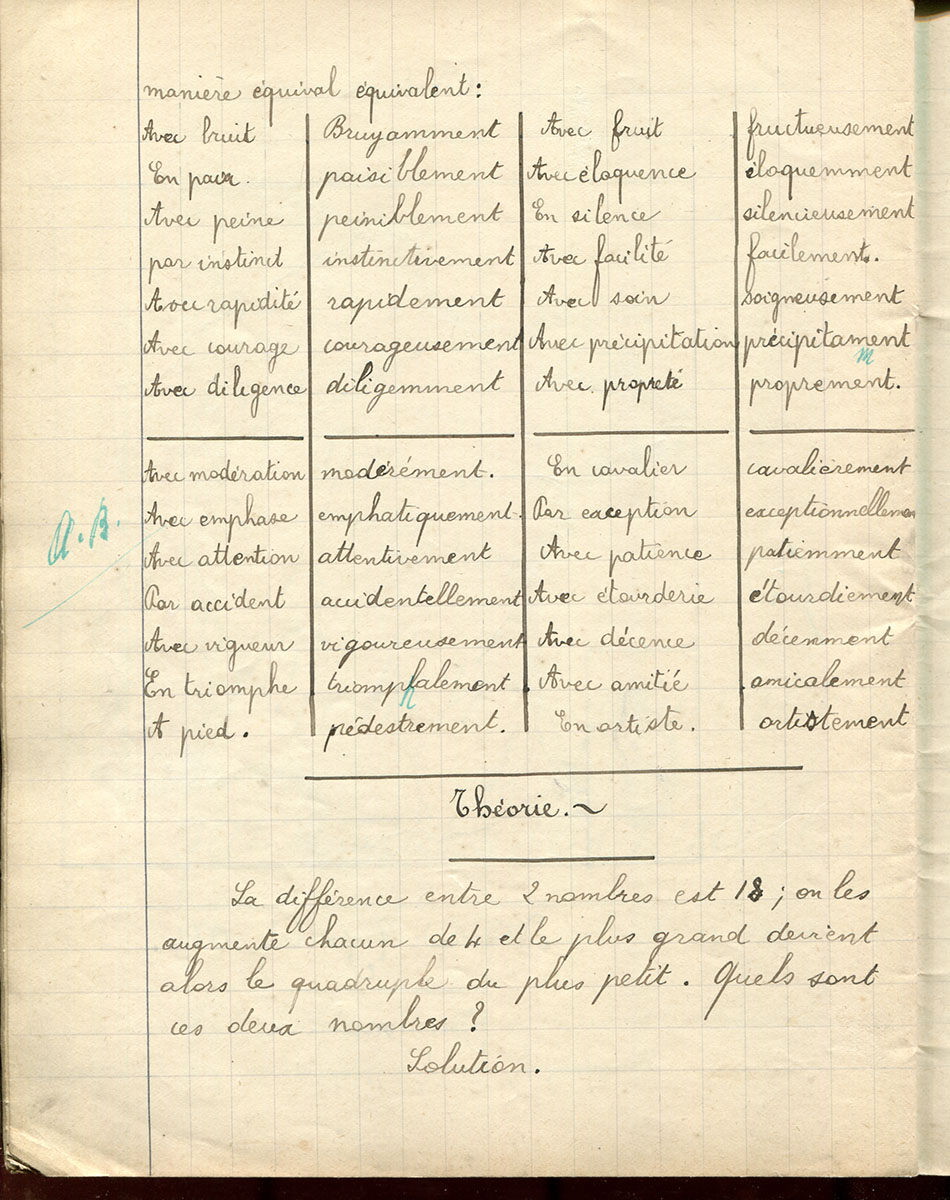 manière équival équivalent :
Avec bruit Bruyamment Avec fruit fructueusement
En paix. paisiblement Avec éloquence éloquemment
Avec peine peiniblement En silence silencieusement
par instinct instinctivement Avec facilité facilement.
Avec rapidité rapidement Avec soin soigneusement
Avec courage courageusement Avec précipitation précipitament
m
Avec diligence diligemment Avec propreté proprement.
Avec modération modérément. En cavalier cavalièrement
Avec emphase emphatiquement. Par exception exceptionnellement
A.B.
Avec attention attentivement Avec patience patiemment
Par accident accidentellement Avec étourderie étourdiement
Avec vigueur vigoureusement Avec décence décemment
En triomphe triomphalement Avec amitié amicalement
A pied. pédestrement. En artiste. artistement
Théorie. ~
La différence entre 2 nombres est 18 ; on les
augmente chacun de 4 et le plus grand devient
alors le quadruple du plus petit. Quels sont
ces deux nombres ?
Solution.